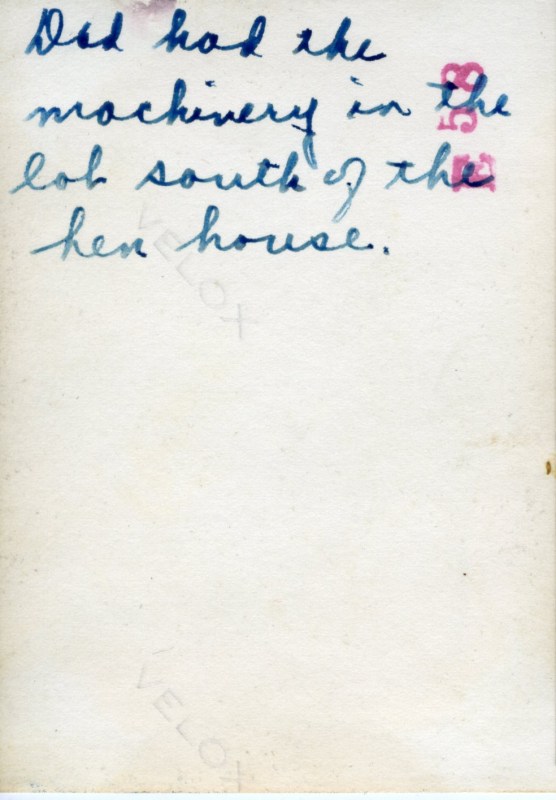 Dad had the
machinery in the
lot south of the
hen house.
E 58
VELOX
VELOX